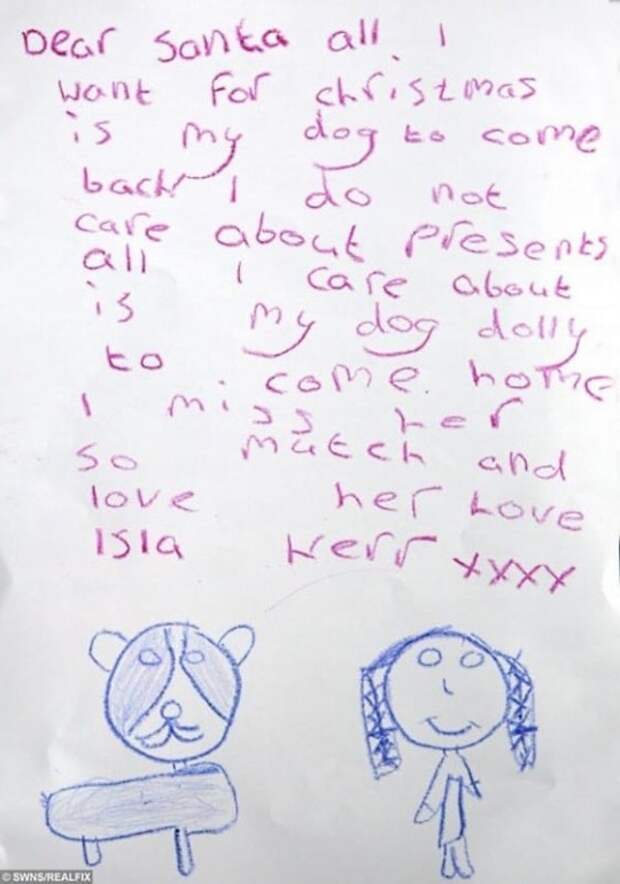 Dear Santa all I
want for christmas
is my dog to come
back I do not
care about presents
all I care about
is my dog dolly
to come. home
I miss her
so mutch and
love her Love
Isla Kerr xxxx
© SWNS/REALFIX